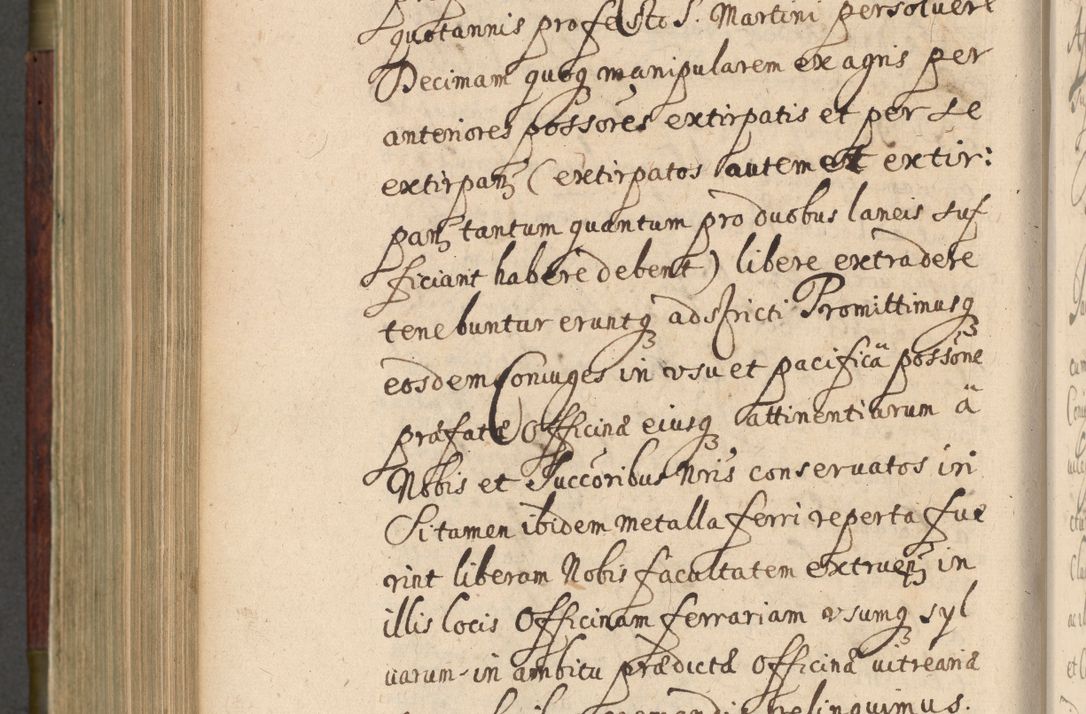 quotannis pro festo S. Martini persoluere
Decimam quoq manipularem ex agris per
anteriores possores extirpatis et per se
extirpan (extirpatos autem et extir:
pan tantum quantum pro duobus laneis suf
ficiant habere debent) libere extradere
tenebuntur eruntq adstricti Promittimusq
eosdem Coniuges in vsu et pacifica possone
præfatæ Officinæ eiusq attinentiarum a
Nobis et Succoribus Nris conseruatos iri
Si tamen ibidem metalla ferri reperta fue
rint liberam Nobis facultatem extruen in
illis locis Officinam ferrariam vsumq syl
uarum in ambitu prædictæ Officinæ vitreariæ
relinquimus.